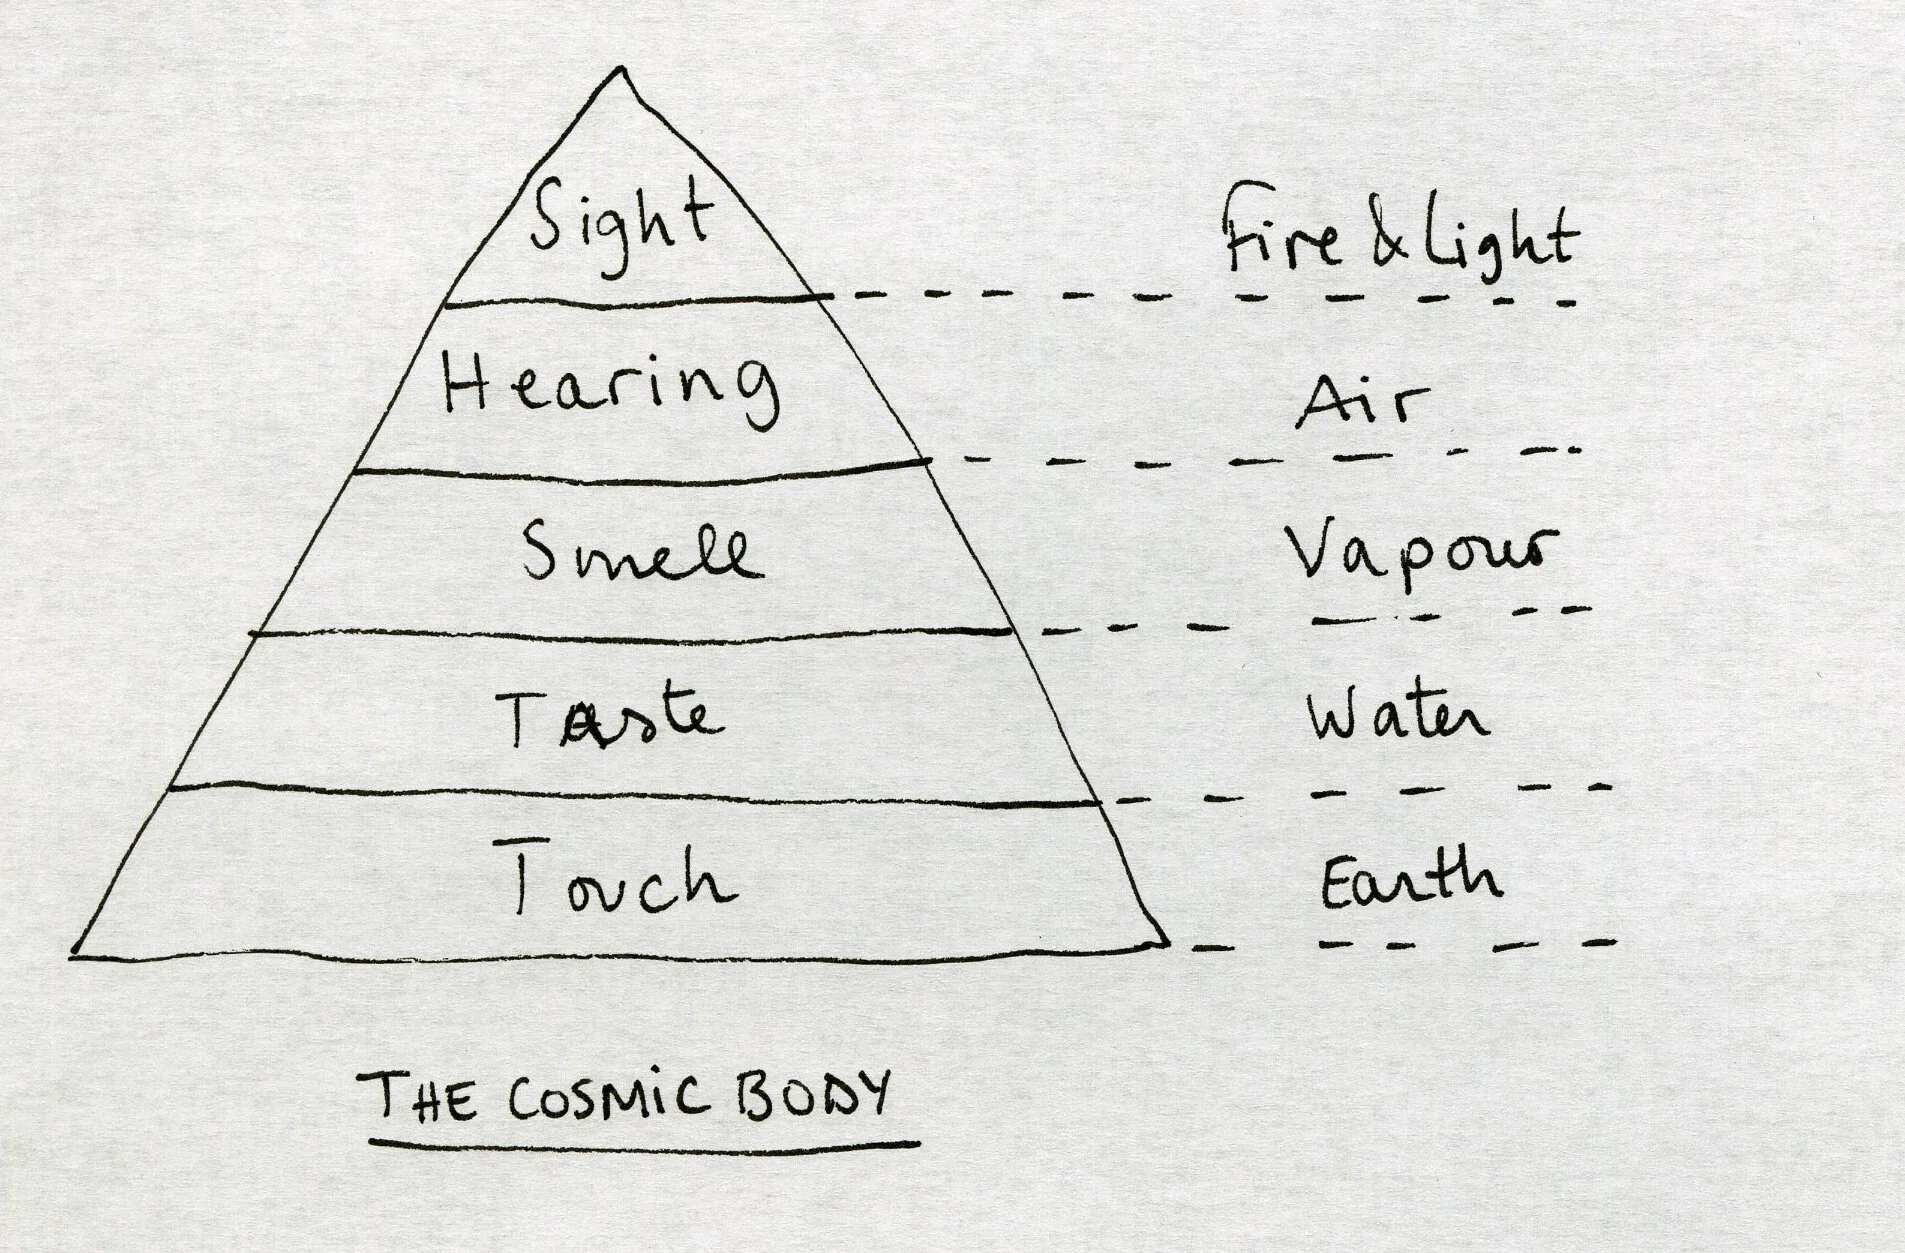 Sight Fire & Light
Hearing Air
Smell Vapour
Taste Water
Touch Earth
THE COSMIC BODY